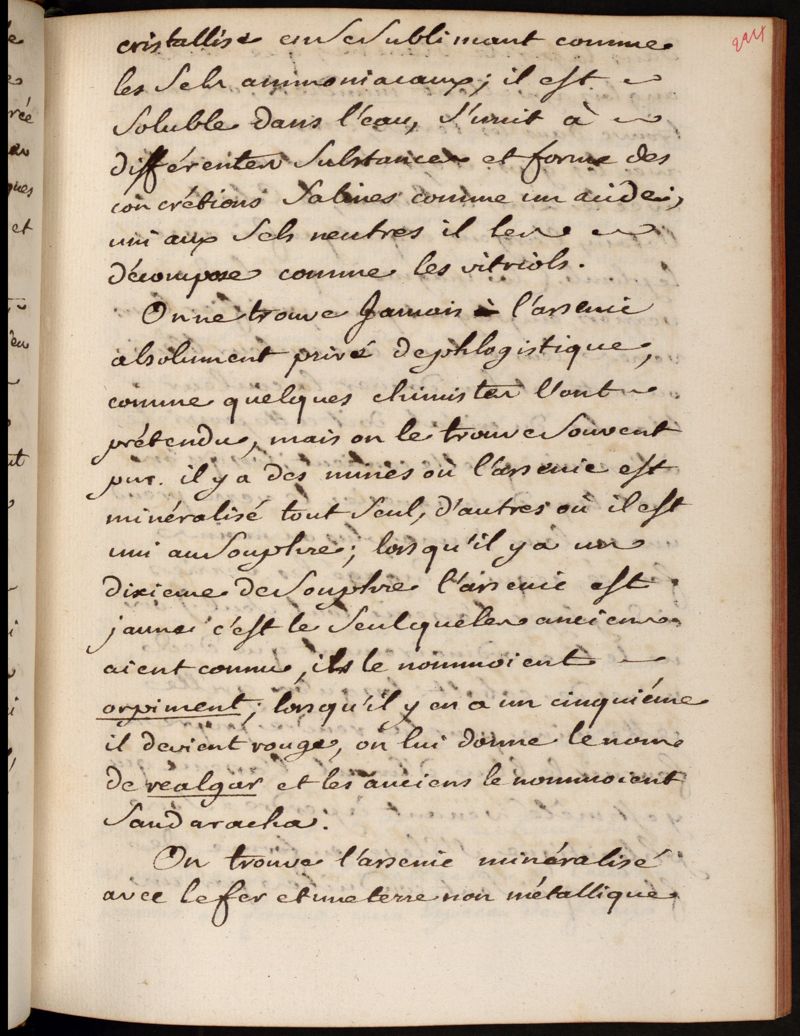 224
cristallise en se sublimant comme
les Sels ammoniacaux; il est
soluble dans l'eau, s'unit à
différentes substances et forme des
concrétions salines comme un acide,
uni aux Sels neutres il les
décompose comme les vitriols.
On ne trouve Jamais l'arsenic
absolument privé de phlogistique,
comme quelques chimistes l'ont
prétendu, mais on le trouve souvent
pur. il y a des mines où l'arsenic est
minéralisé tout seul, d'autres où il est
uni au souphre; lorsqu'il y a un
dixieme de souphre l'arsenic est
jaune c'est le seul que les anciens
aient connu, ils le nommoient
orpiment; lorsqu'il y en a un cinquiéme
il devient rouge, on lui donne le nom
de réalgar et les anciens le nommoient
Sandaracha.
On trouve l'arsenic minéralisé
avec le fer et une terre non métallique